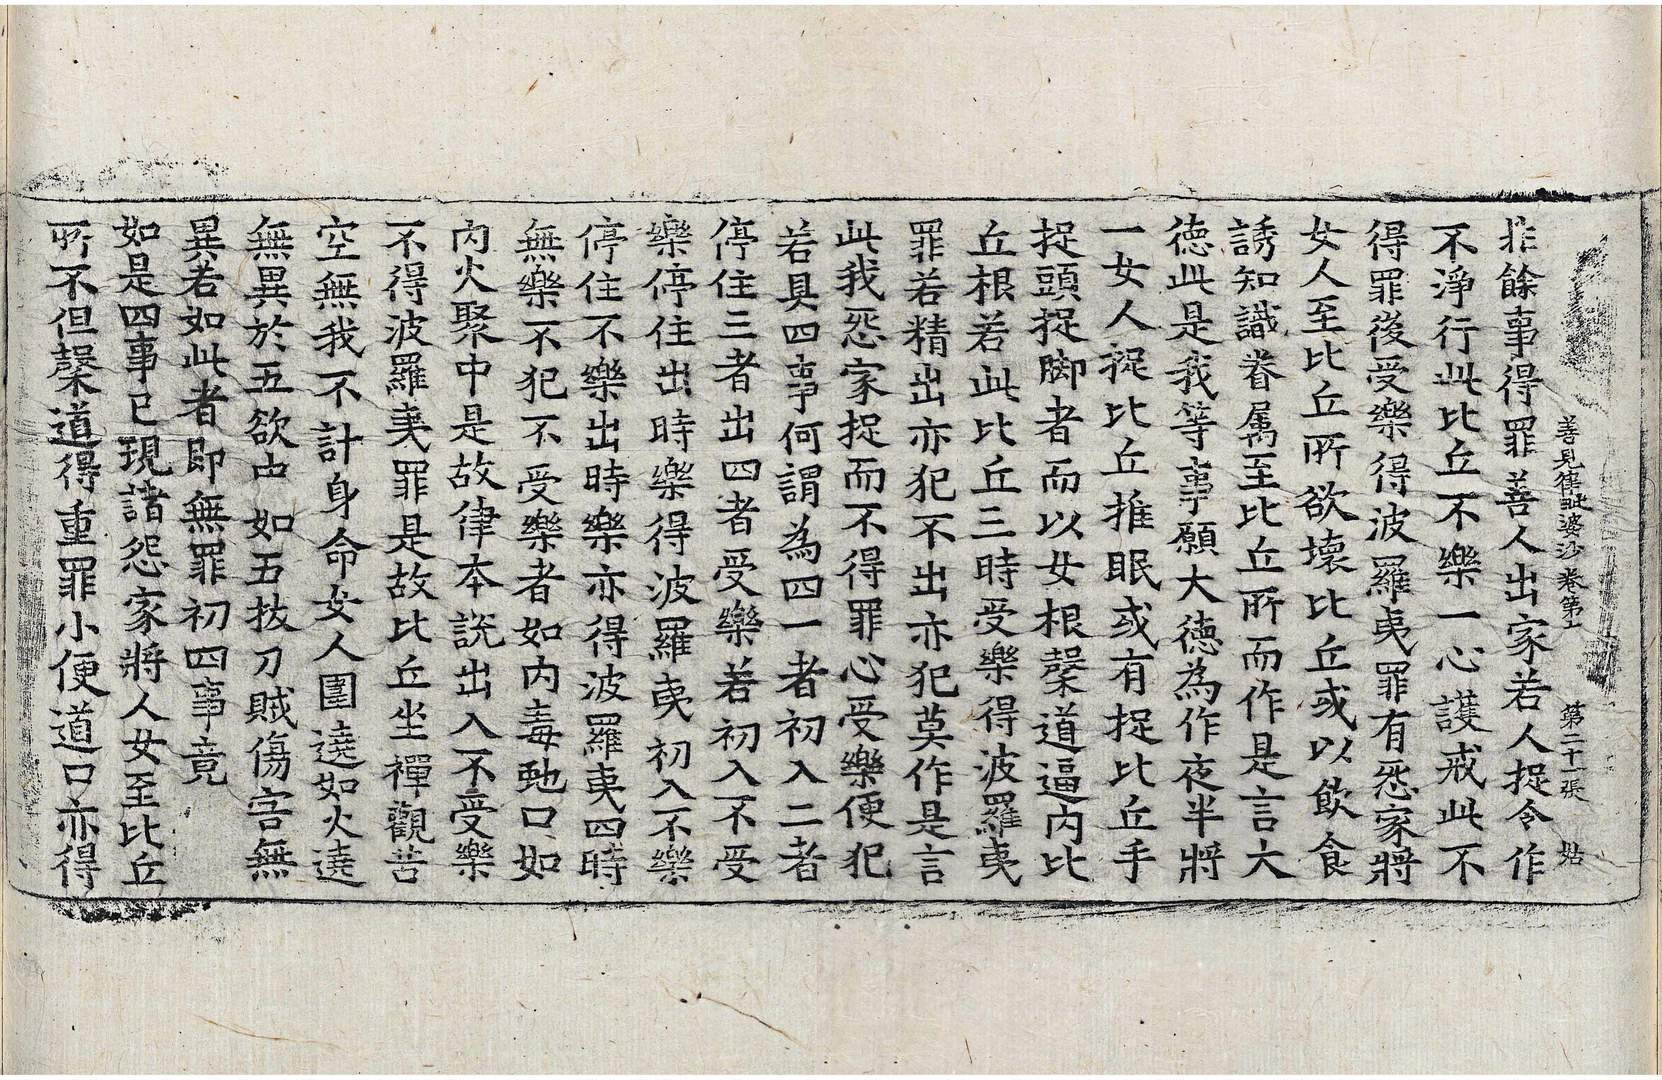 善見律毗婆沙卷第七 第二十一張 姑
非餘事得罪善人出家若人捉令作
不淨行此比丘不樂一心護戒此不
得罪後受樂得波羅夷罪有惡家將
女人至比丘所欲壞比丘或以飲食
誘知識眷属至比丘所而作是言大
德此是我等事願大德為作夜半將
一女人捉比丘推眠或有捉比丘手
捉頭捉脚者而以女根槃道逼內比
丘根若此比丘三時受樂得波羅夷
罪若精出亦犯不出亦犯莫作是言
此我怨家捉而不得罪心受樂便犯
若具四事何謂為四一者初入二者
停住三者出四者受樂若初入不受
樂停住出時樂得波羅夷初入不樂
停住不樂出時樂亦得波羅夷四時
無樂不犯不受樂者如內毒虵口如
內火聚中是故律本說出入不受樂
不得波羅夷罪是故比丘坐禪觀苦
空無我不計身命女人圍遶如火遶
無異於五欲中如五拔刀賊傷害無
異若如此者即無罪初四事竟
如是四事已現諸怨家將人女至比丘
所不但槃道得重罪小便道口亦得